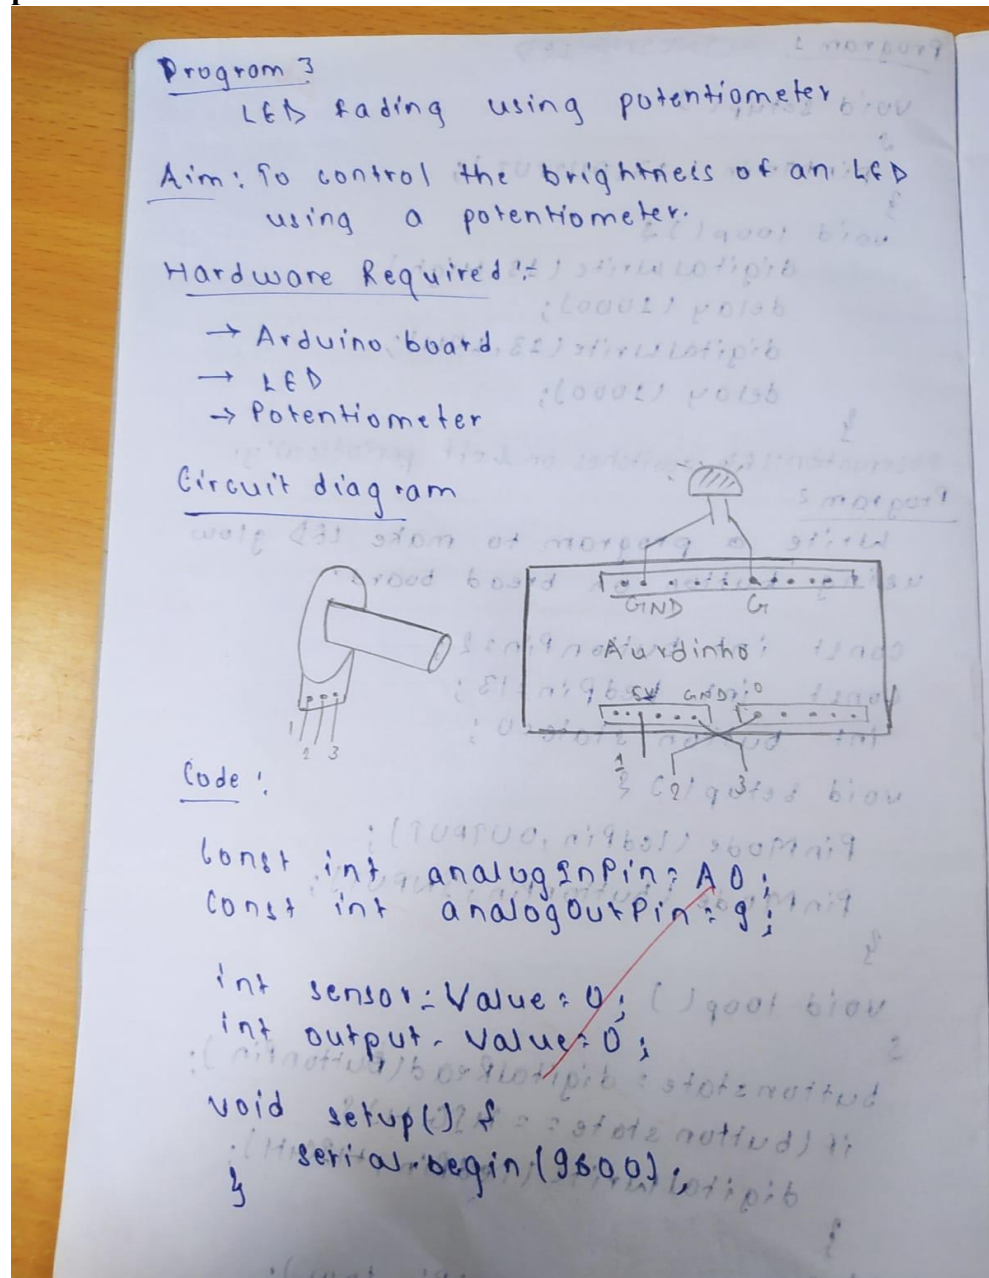 Program 3
LED fading using potentiometer
Aim: To control the brightness of an LED
using a potentiometer.
Hardware Required:-
→ Arduino board
→ LED
→ Potentiometer
Circuit diagram
GND G
Aurdinho
5V GND 0
1 2 3
1 2 3
Code :
Const int analogInPin = A0;
Const int analogOutPin = 9;
int sensor-Value = 0;
int output-Value = 0;
void setup() {
serial.begin(9600);
}